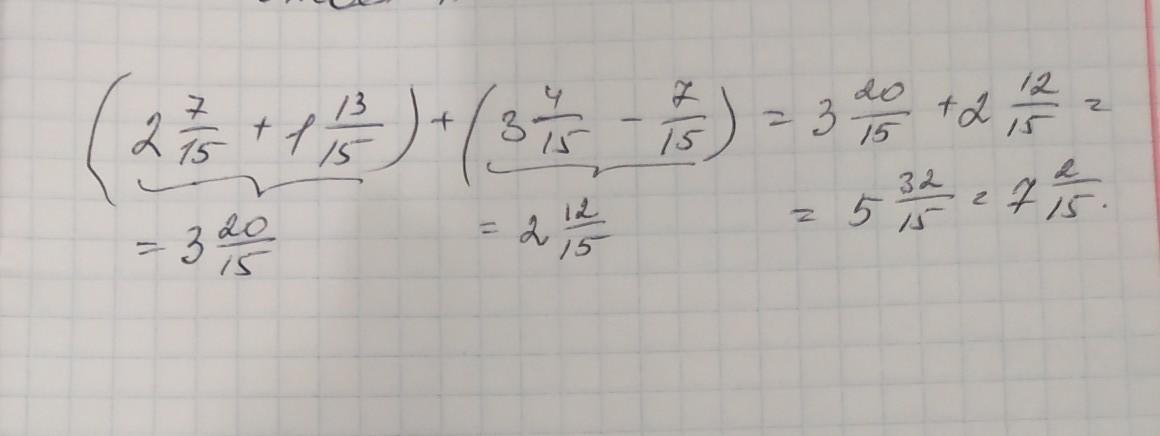 (2 7/15 + 1 13/15) + (3 4/15 - 7/15) = 3 20/15 + 2 12/15 =
= 3 20/15 = 2 12/15 = 5 32/15 = 7 2/15.